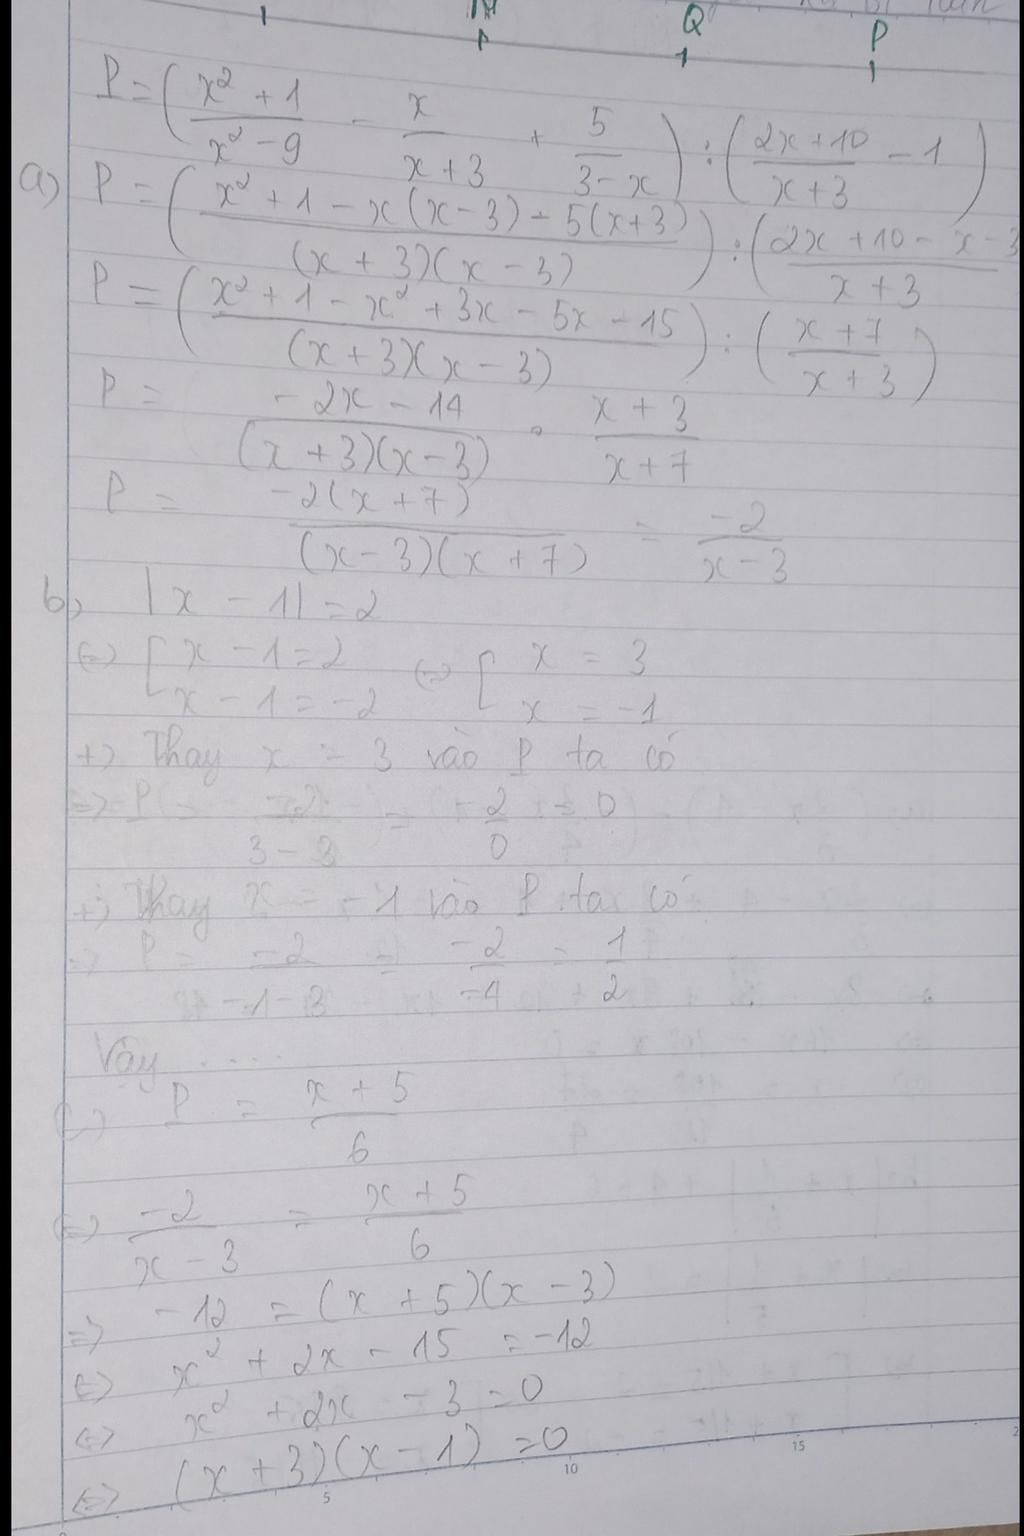 M Q P
P = ( \frac{x² + 1}{x² - 9} - \frac{x}{x + 3} + \frac{5}{3 - x} ) : ( \frac{2x + 10}{x + 3} - 1 )
a) P = ( \frac{x² + 1 - x(x - 3) - 5(x + 3)}{(x + 3)(x - 3)} ) : ( \frac{2x + 10 - x - 3}{x + 3}
P = ( \frac{x² + 1 - x² + 3x - 5x - 15}{(x + 3)(x - 3)} ) : ( \frac{x + 7}{x + 3} )
P = \frac{-2x - 14}{(x + 3)(x - 3)} . \frac{x + 3}{x + 7}
P = \frac{-2(x + 7)}{(x - 3)(x + 7)} = \frac{-2}{x - 3}
b, |x - 1| = 2
<=> [ x - 1 = 2 <=> [ x = 3
x - 1 = -2 x = -1
+> Thay x = 3 vào P ta có
=> P = \frac{-2}{3 - 3} = \frac{-2}{0} = 0
+> Thay x = -1 vào P ta có
=> P = \frac{-2}{-1 - 3} = \frac{-2}{-4} = \frac{1}{2}
Vậy ....
c) P = \frac{x + 5}{6}
<=> \frac{-2}{x - 3} = \frac{x + 5}{6}
=> -12 = (x + 5)(x - 3)
<=> x² + 2x - 15 = -12
<=> x² + 2x - 3 = 0
<=> (x + 3)(x - 1) = 0
5 10 15 2